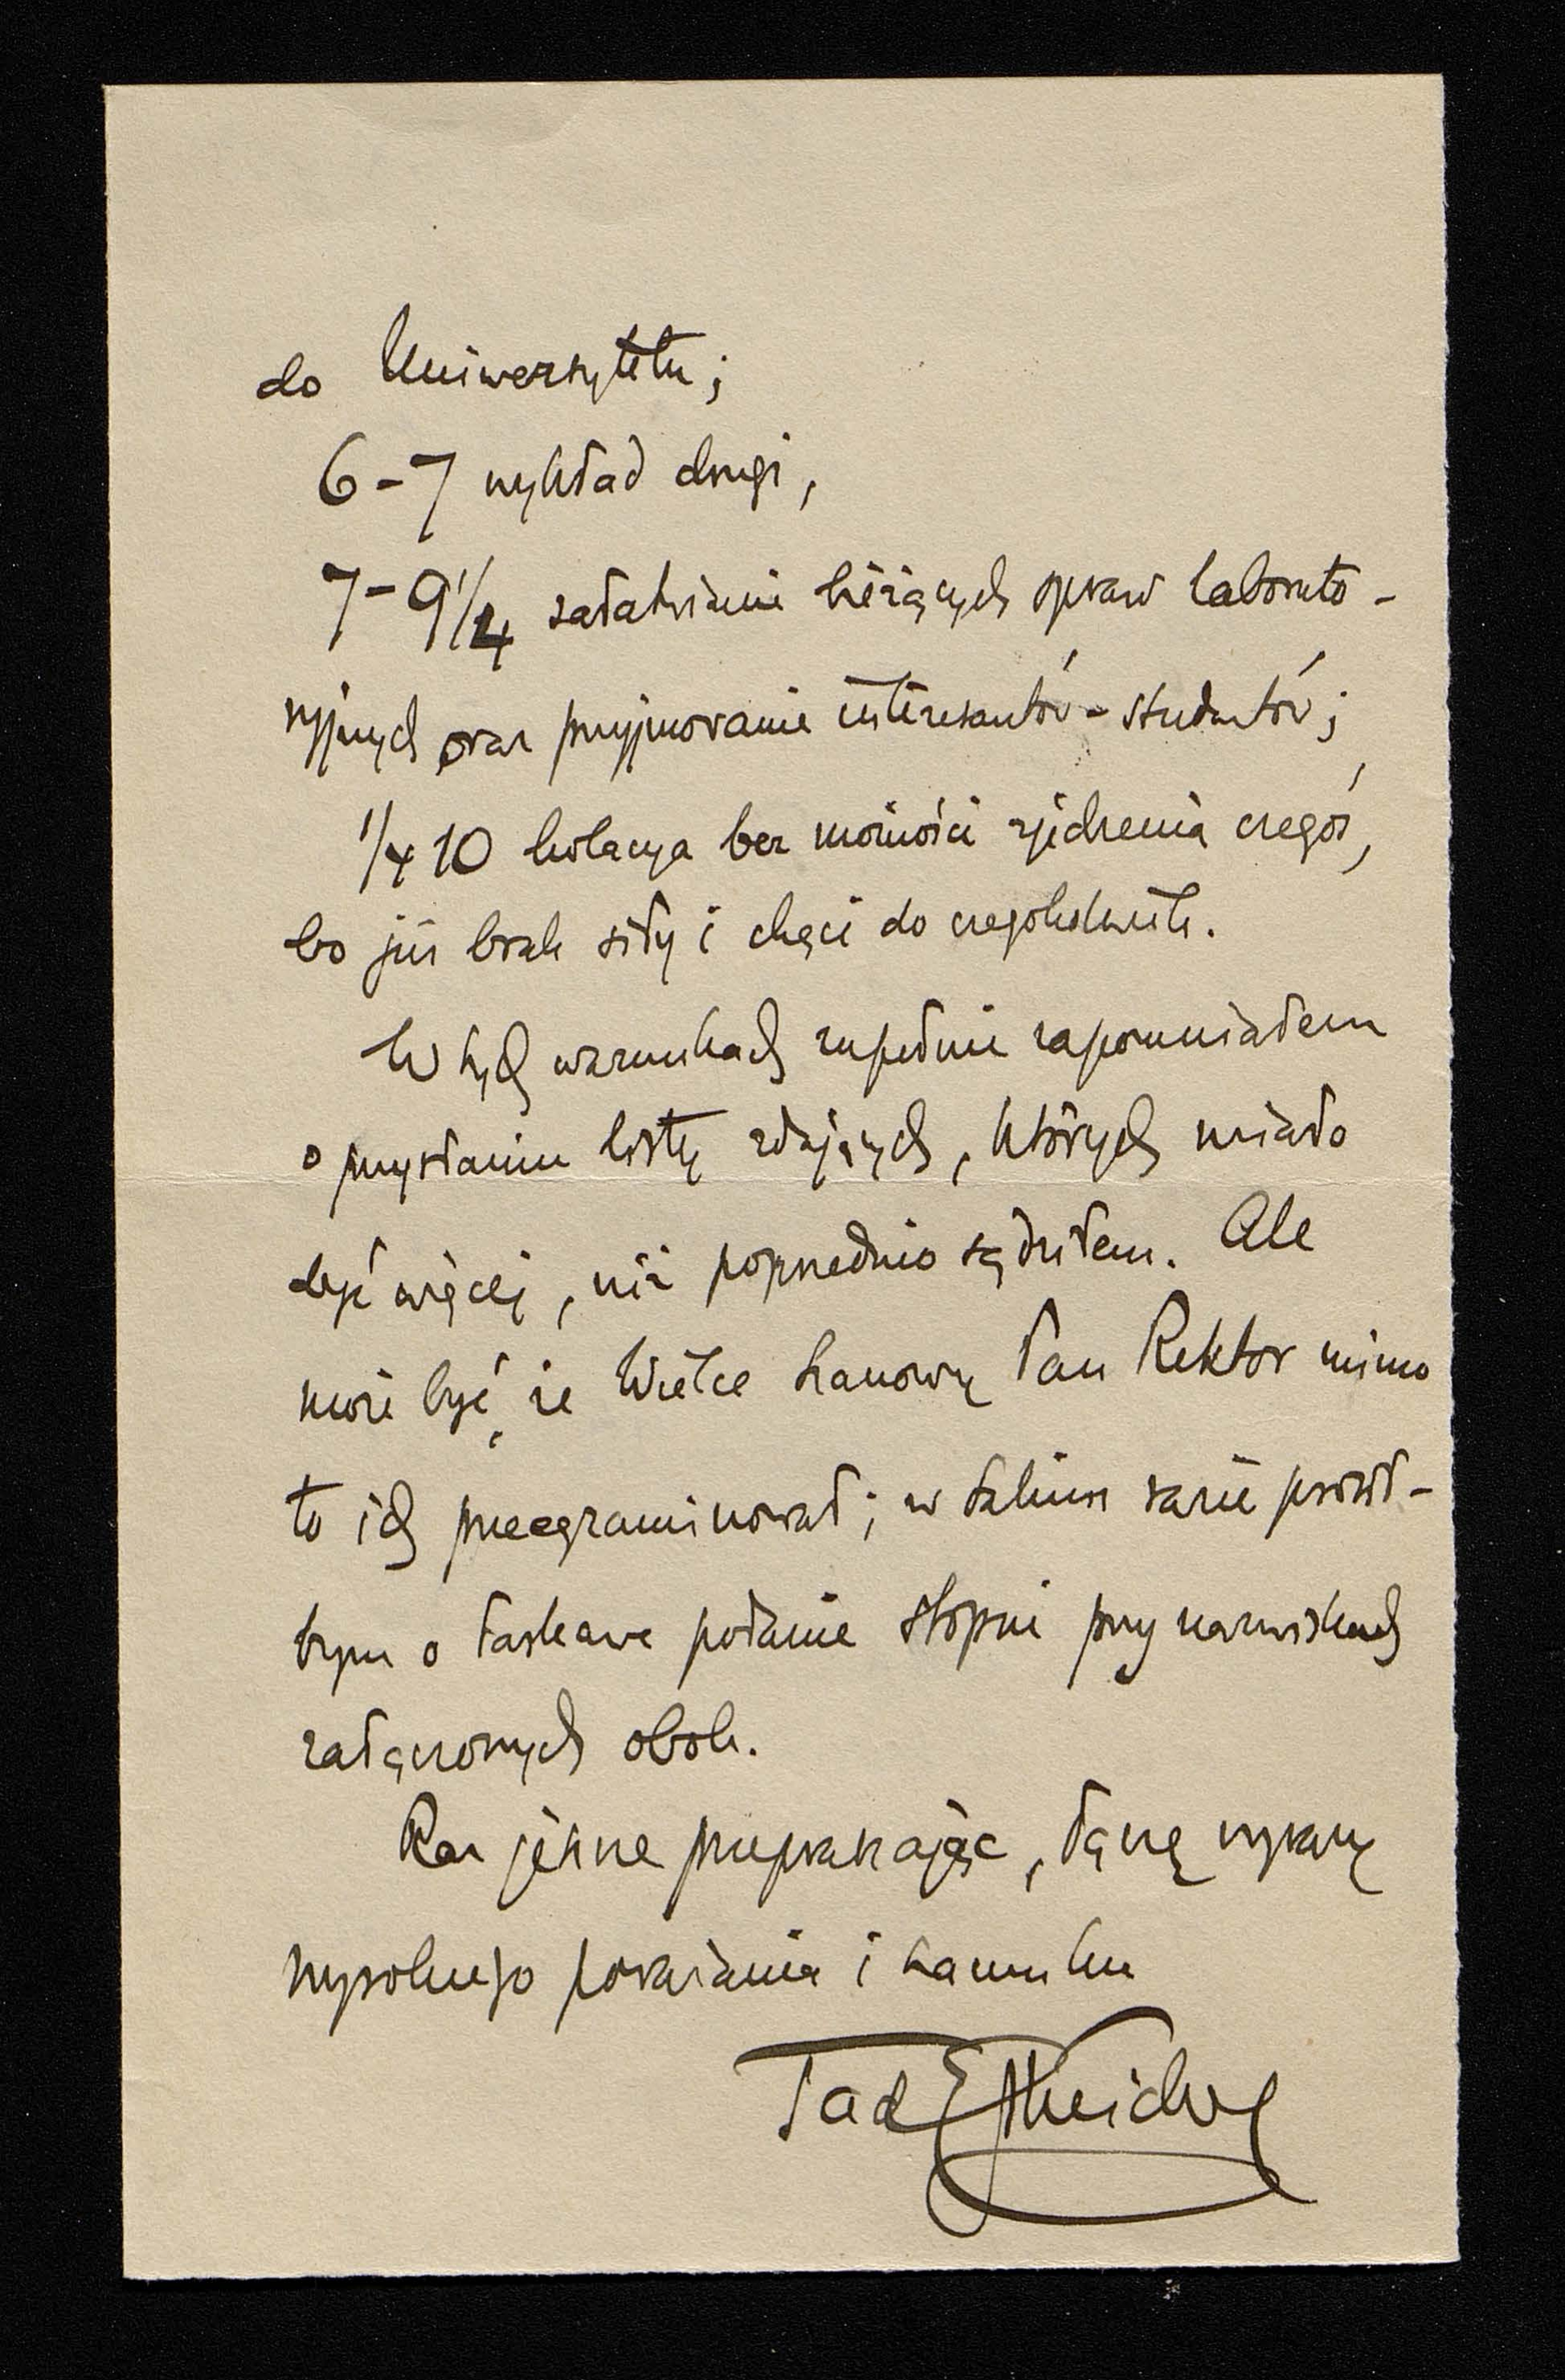 do Uniwersytetu;
6-7 wykład drugi,
7-9 1/4 załatwianie bieżących spraw laborato-
ryjnych oraz przyjmowanie interesantów-studentów;
1/4 10 kolacya bez możności zjedzenia czegoś,
bo już brak siły i chęci do czegokolwiek.
W tych warunkach zupełnie zapomniałem
o przysłaniu listy zdających, których miało
być więcej, niż poprzednio sądziłem. Ale
może być, że Wielce Szanowny Pan Rektor mimo
to ich przeegzaminował; w takim razie prosił-
bym o łaskawe podanie stopni przy nazwiskach
załączonych obok.
Raz jeszcze przepraszając, łączę wyrazy
wysokiego poważania i szacunku
Tad Estreicher